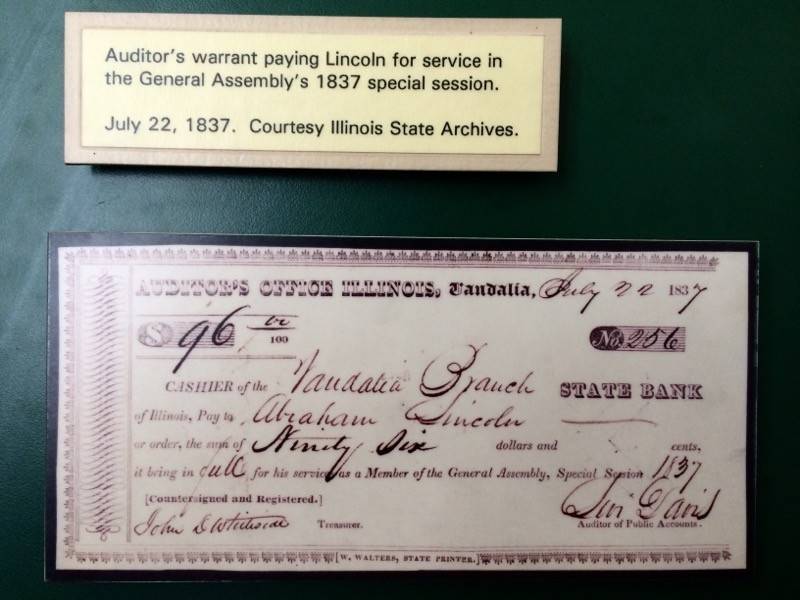 Auditor's warrant paying Lincoln for service in
the General Assembly's 1837 special session.
July 22, 1837. Courtesy Illinois State Archives.
AUDITOR'S OFFICE ILLINOIS, Vandalia, July 22 1837
$ 96 00/100 No. 256
CASHIER of the Vandalia Branch STATE BANK
of Illinois, Pay to Abraham Lincoln
or order, the sum of Ninety Six dollars and cents,
it being in full for his services as a Member of the General Assembly, Special Session 1837
[Countersigned and Registered.] Levi Davis
John D Whiteside Treasurer. Auditor of Public Accounts.
[W. WALTERS, STATE PRINTER.]